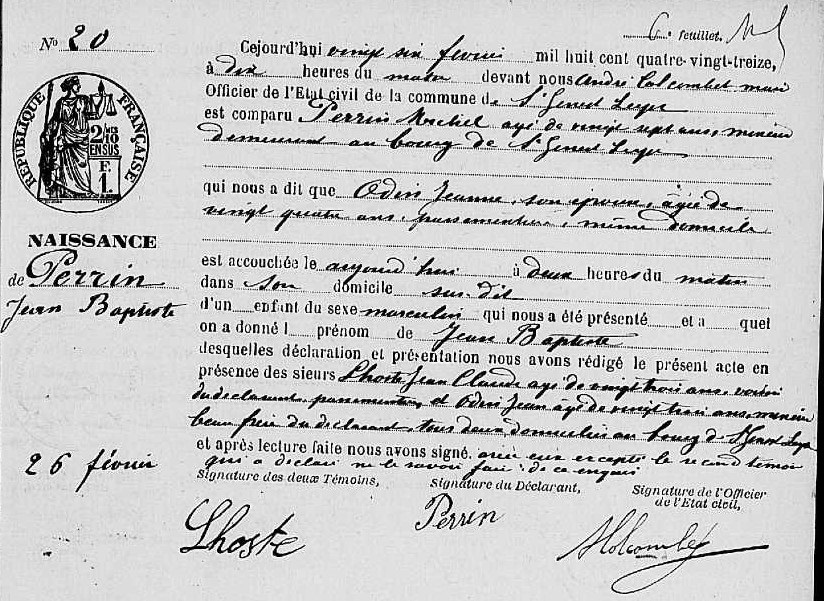 6e feuillet.
No 20
Cejourd'hui vingt six février mil huit cent quatre-vingt-treize,
à dix heures du matin devant nous André Colcombet maire
Officier de l'Etat civil de la commune de St Genest Lerpt
est comparu Perrin Michel âgé de vingt sept ans, mineur
demeurant au bourg de St Genest Lerpt
RÉPUBLIQUE FRANÇAISE
2/10 EN SUS
F.
1.
qui nous a dit que Odin Jeanne, son épouse, âgée de
vingt quatre ans, passementière, même domicile
NAISSANCE
de Perrin
Jean Baptiste
est accouchée le aujourd'hui à deux heures du matin
dans son domicile sus-dit
d'un enfant du sexe masculin qui nous a été présenté et a quel
on a donné l prénom de Jean Baptiste
desquelles déclaration et présentation nous avons rédigé le présent acte en
présence des sieurs Lhoste Jean Claude âgé de vingt trois ans, voisin
du déclarant, passementier, et Odin Jean âgé de vingt trois ans, mineur
beau frère du déclarant, tous deux domiciliés au bourg de St Genest Lerpt
26 février
et après lecture faite nous avons signé, avec eux excepté le second témoin
qui a déclaré ne le savoir faire de ce enquis
Signature des deux Témoins,
Signature du Déclarant,
Signature de l'Officier
de l'Etat civil,
Lhoste
Perrin
AColcombet